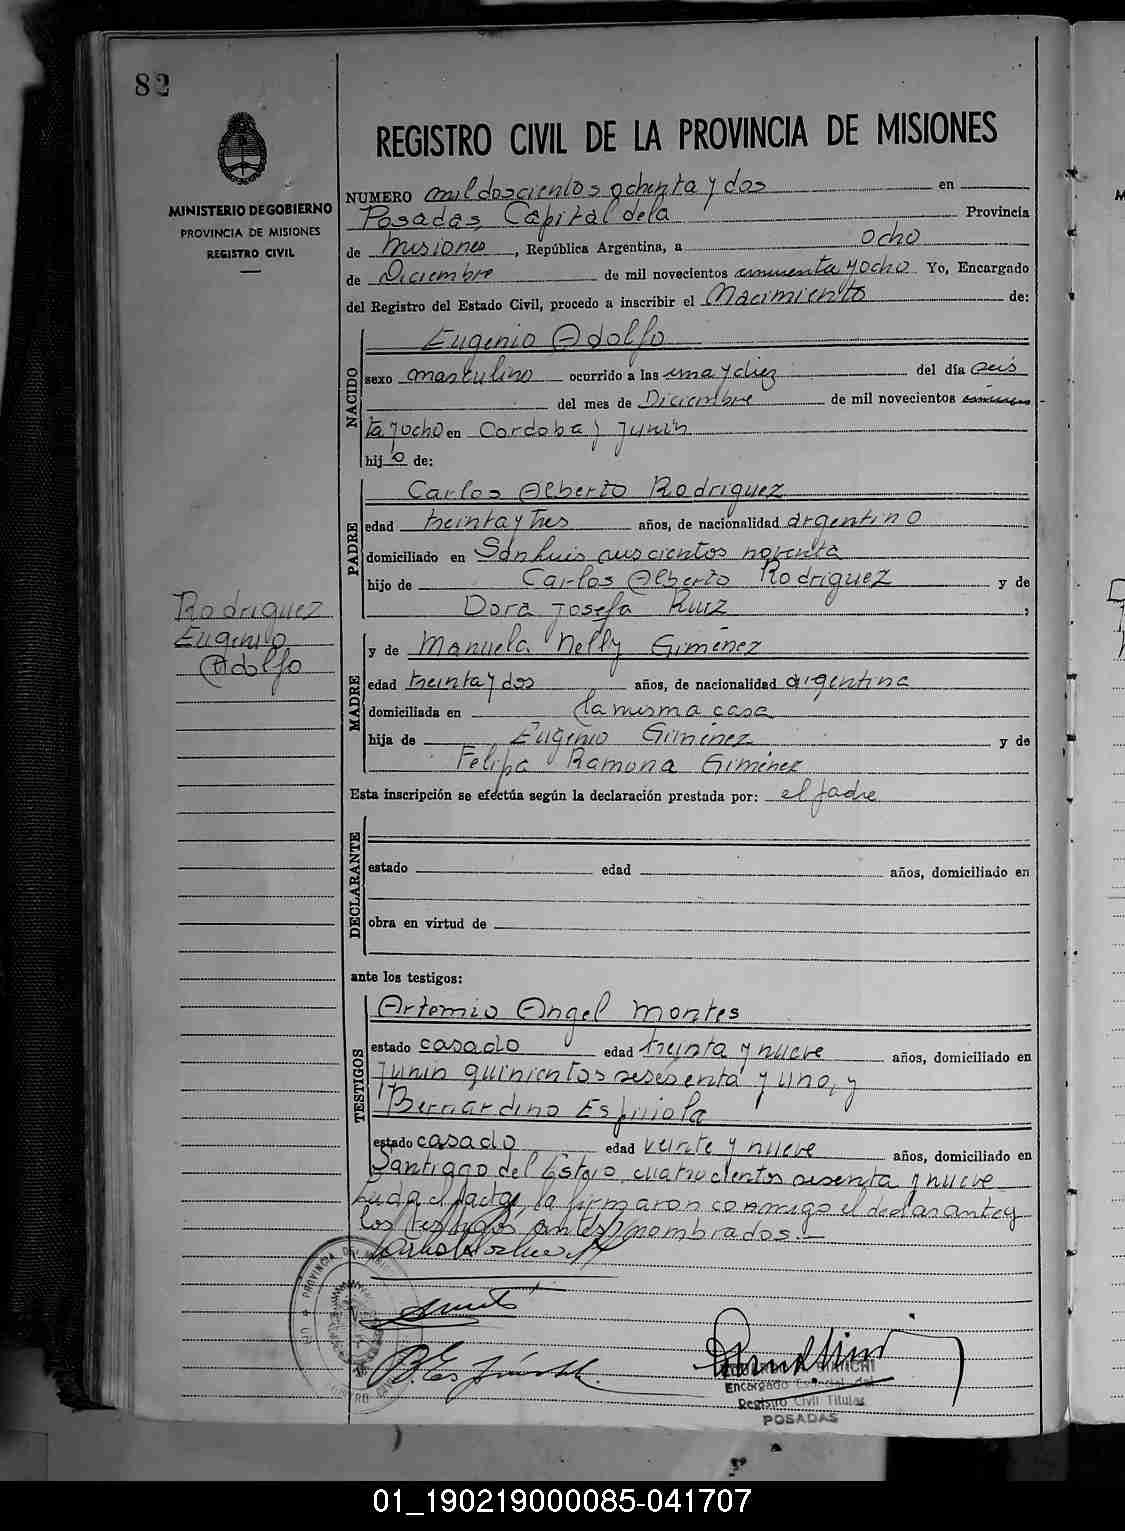 82
MINISTERIO DE GOBIERNO
PROVINCIA DE MISIONES
REGISTRO CIVIL
Rodriguez
Eugenio
Adolfo
REGISTRO CIVIL DE LA PROVINCIA DE MISIONES
NUMERO mil doscientos ochenta y dos en
Posadas, Capital de la Provincia
de Misiones, República Argentina, a ocho
de Diciembre de mil novecientos cincuenta y ocho Yo, Encargado
del Registro del Estado Civil, procedo a inscribir el Nacimiento de:
NACIDO
Eugenio Adolfo
sexo masculino ocurrido a las una y diez del día seis
del mes de Diciembre de mil novecientos cincuen-
ta y ocho en Cordoba y Junin
hijo de:
PADRE
Carlos Alberto Rodriguez
edad treinta y tres años, de nacionalidad argentino
domiciliado en San Luis noventa
hijo de Carlos Alberto Rodriguez y de
Dora Josefa Ruiz,
MADRE
y de Manuela Nelly Giménez
edad treinta y dos años, de nacionalidad argentina
domiciliada en la misma casa
hija de Eugenio Giménez y de
Felipa Ramona Giménez
Esta inscripción se efectúa según la declaración prestada por: el padre
DECLARANTE
estado edad años, domiciliado en
obra en virtud de
ante los testigos:
TESTIGOS
Artemio Angel Montes
estado casado edad treinta y nueve años, domiciliado en
Junin quinientos sesenta y uno, y
Bernardino Espinola
estado casado edad veinte y nueve años, domiciliado en
Santiago del Estero cuatrocientos sesenta y nueve
Leida el acta, la firmaron conmigo el declarante y
los testigos antes nombrados.-
Encargado del
Registro Civil Titular
POSADAS
01_190219000085-041707